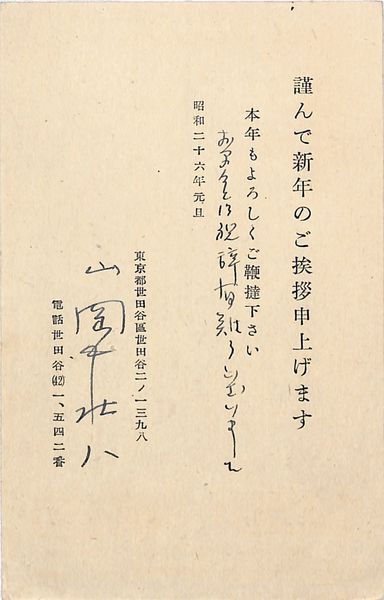 謹んで新年のご挨拶申上げます
本年もよろしくご鞭撻下さい
祝辞有難う
昭和二十六年元旦
東京都世田谷區世田谷二ノ一三九八
山岡荘八
電話世田谷(42)一、五四二番